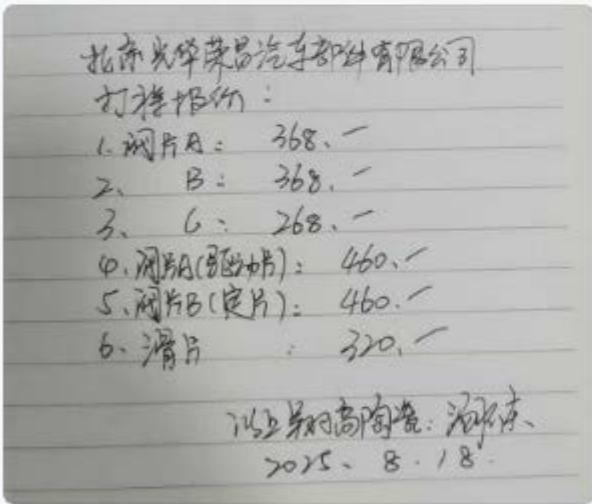 北京光华荣昌汽车部件有限公司
打样报价：
1. 阀片A： 368.-
2、 B： 368.-
3、 C： 268.-
4. 阀片A(驱动片)： 460.-
5、阀片B(定片)： 460.-
6、滑片 ： 320.-
以上 陶瓷：
2025、8.18.